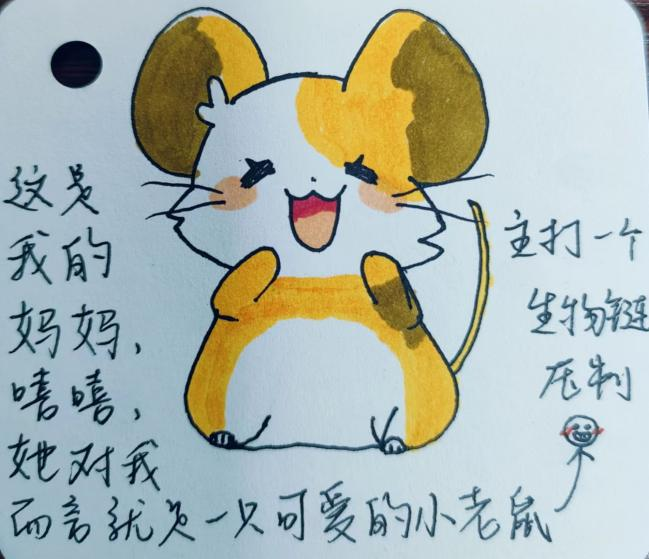 这是
我的
妈妈，
嘻嘻，
她对我
而言就是一只可爱的小老鼠
主打一个
生物链
压制